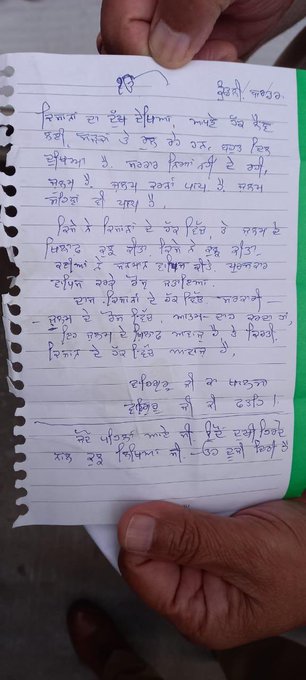 ੴ
ਕਿਸਾਨਾਂ ਦਾ ਦੁੱਖ ਦੇਖਿਆ, ਆਪਣੇ ਹੱਕ ਲੈਣ
ਲਈ, ਸੜਕਾਂ ਤੇ ਰੁਲ ਰਹੇ ਹਨ, ਬਹੁਤ ਦਿਲ
ਦੁਖਿਆ ਹੈ. ਸਰਕਾਰ ਨਿਆਂ ਨਹੀਂ ਦੇ ਰਹੀ,
ਜੁਲਮ ਹੈ. ਜੁਲਮ ਕਰਨਾ ਪਾਪ ਹੈ. ਜੁਲਮ
ਸਹਿਣਾ ਵੀ ਪਾਪ ਹੈ,
ਕਿਸੇ ਨੇ ਕਿਸਾਨਾਂ ਦੇ ਹੱਕ ਵਿੱਚ, ਤੇ ਜੁਲਮ ਦੇ
ਖਿਲਾਫ ਕੁਝ ਕੀਤਾ ਕਿਸੇ ਨੇ ਕੁਝ ਕੀਤਾ.
ਕਈਆਂ ਨੇ ਸਨਮਾਨ ਵਾਪਿਸ ਕੀਤੇ. ਪੁਰਸਕਾਰ
ਵਾਪਿਸ ਕਰਕੇ ਰੋਸ ਜਤਾਇਆ.
ਦਾਸ ਕਿਸਾਨਾਂ ਦੇ ਹੱਕ ਵਿੱਚ ਸਰਕਾਰੀ
ਜੁਲਮ ਦੇ ਰੋਸ ਵਿੱਚ ਆਤਮ-ਦਾਹ ਕਰਦਾ ਹਾਂ,
ਇਹ ਜੁਲਮ ਦੇ ਖਿਲਾਫ ਅਵਾਜ਼ ਹੈ ਤੇ ਕਿਰਤੀ
ਕਿਸਾਨ ਦੇ ਹੱਕ ਵਿੱਚ ਆਵਾਜ਼ ਹੈ,
ਵਾਹਿਗੁਰੂ ਜੀ ਕਾ ਖਾਲਸਾ
ਵਾਹਿਗੁਰੂ ਜੀ ਕੀ ਫਤਹਿ।
ਪਹਿਲਾਂ ਆਏ ਸੀ
ਨਾਲ ਕੁਝ ਲਿਖਿਆ ਸੀ